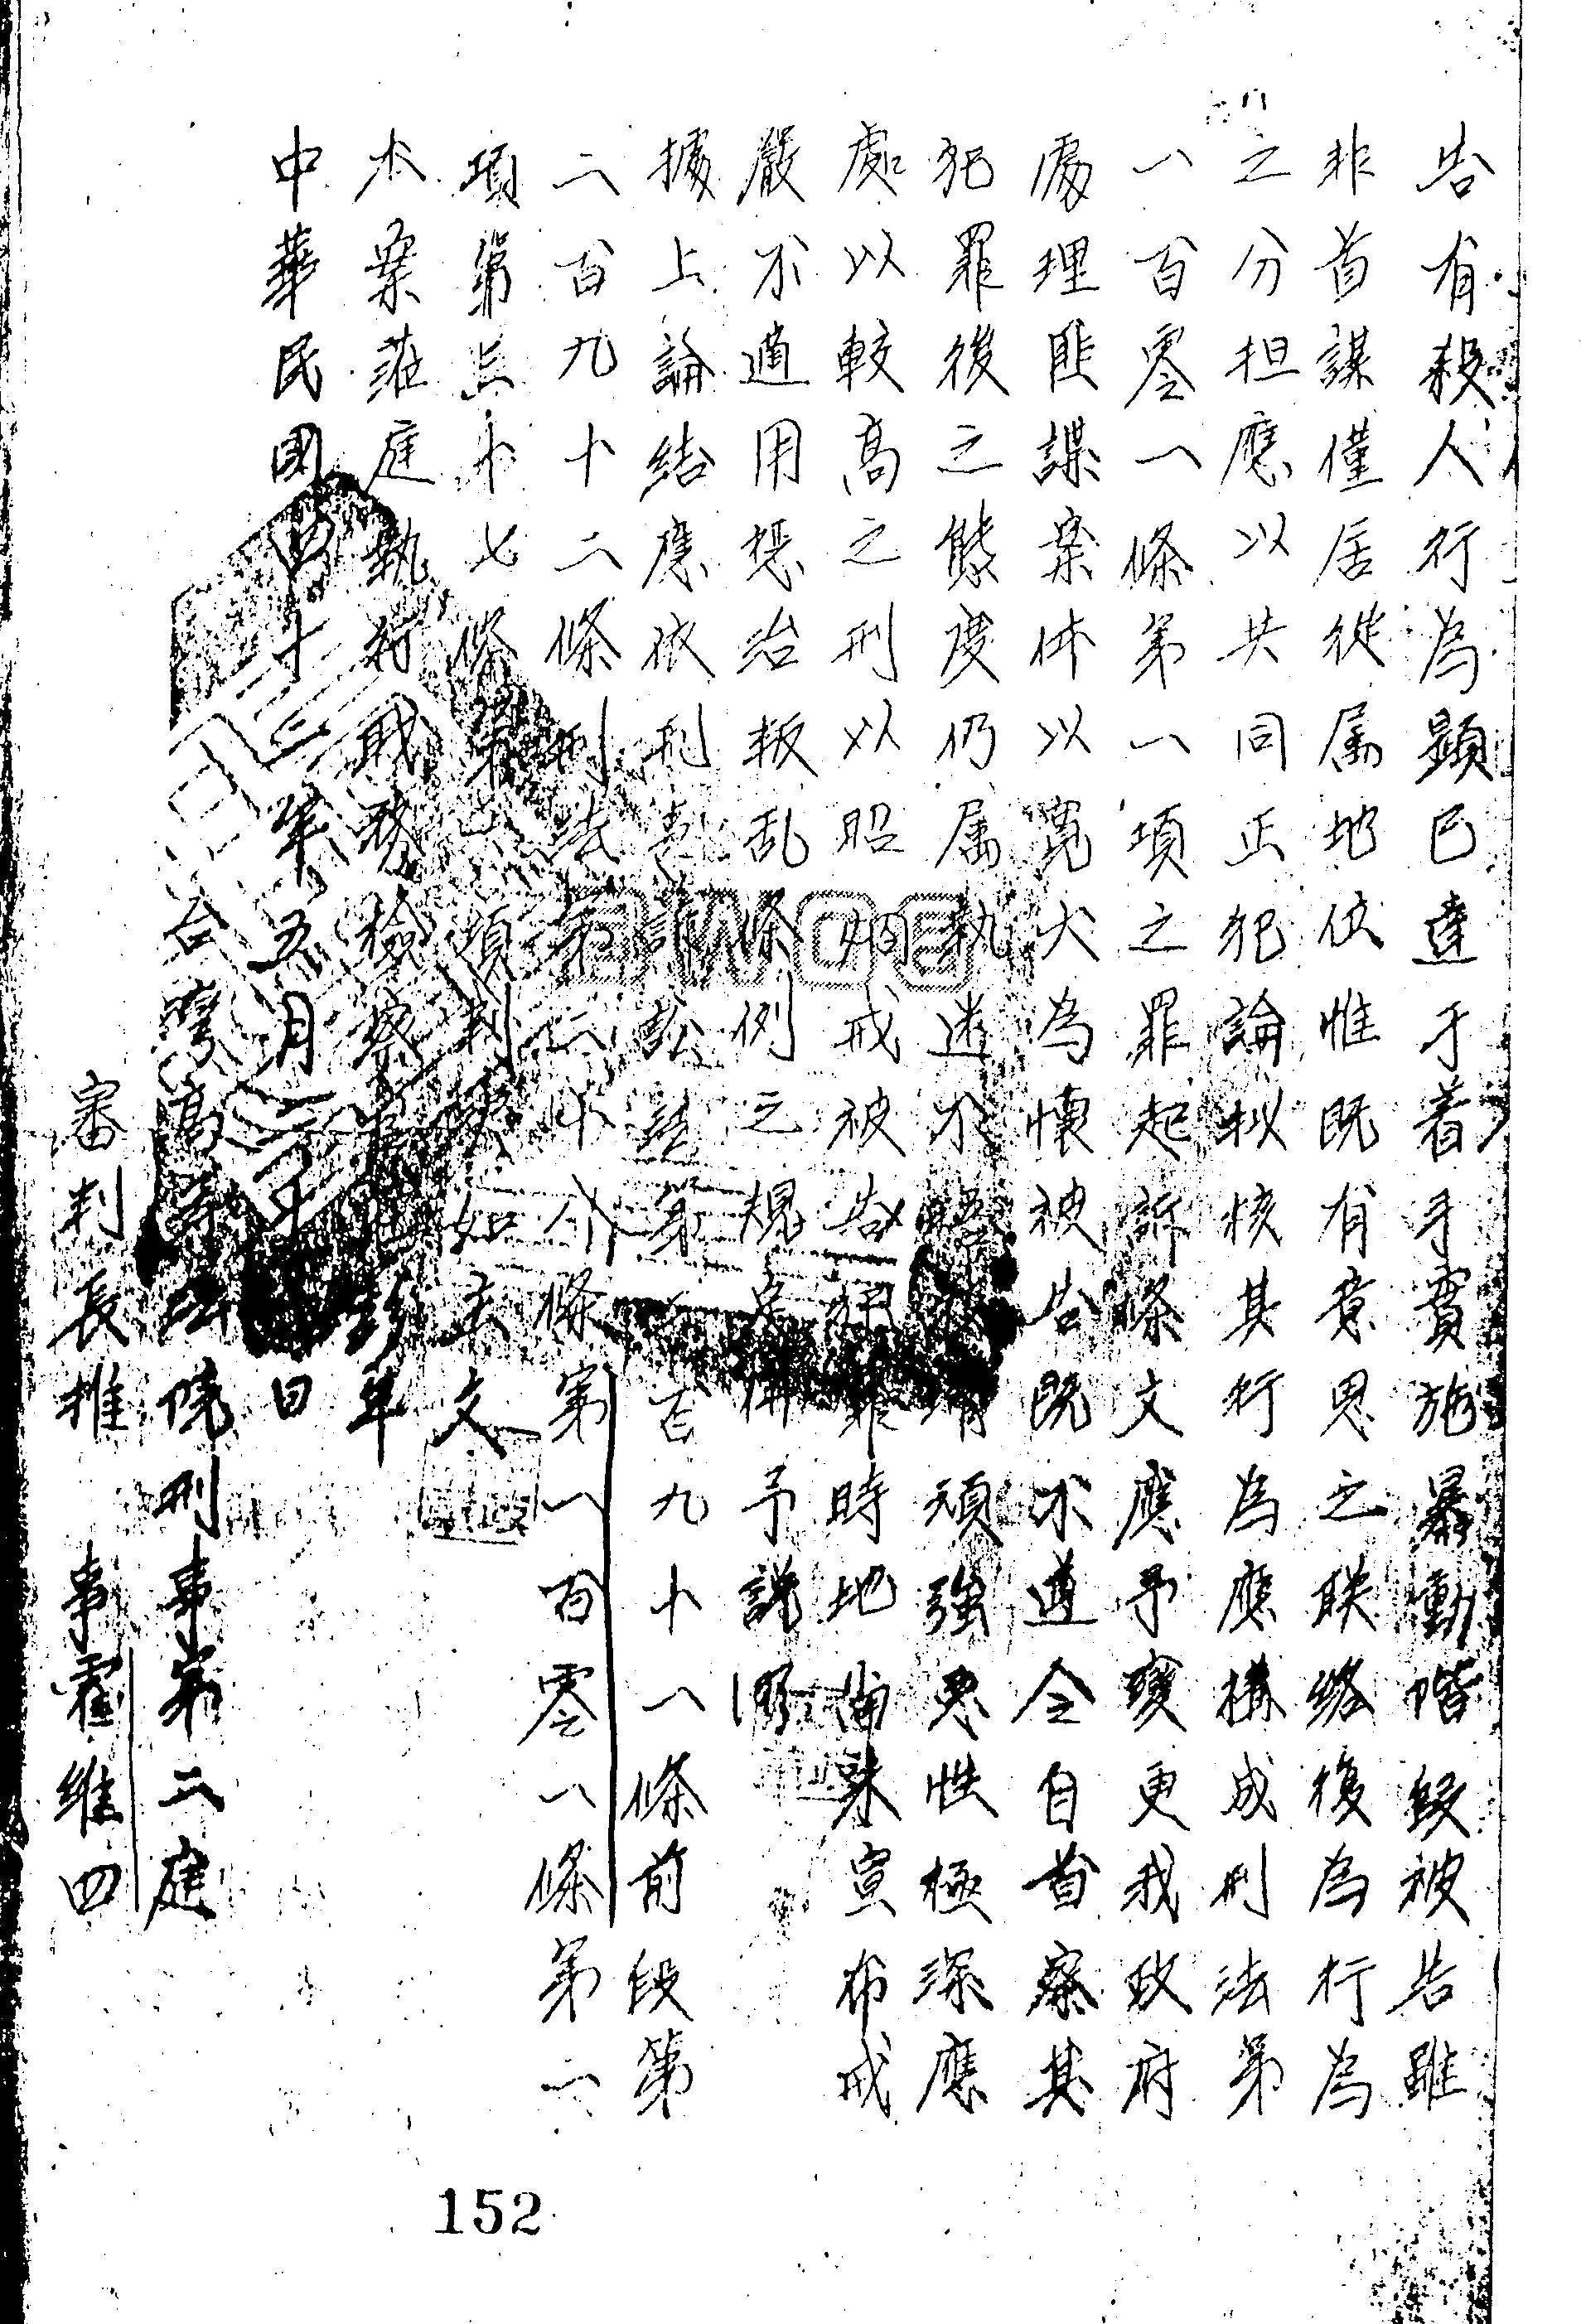 告有殺人行為顯已達于着手實施暴動階段被告雖
非首謀僅居從属地位惟既有意思之联络後為行為
之分担應以共同正犯論擬核其行為應構成刑法第
一百零一條第一項之罪起訴條文應予變更我政府
處理匪諜案件以寬大為懷被告既不遵令自首察其
犯罪後之態度仍属執迷不頑強惡性極深應
處以較高之刑以昭烱戒被告犯罪時地尚未宣布戒
嚴不適用懲治叛乱條例之規予説明
據上論結應依刑事訴訟法第二百九十一條前段第
二百九十二條刑法第二十八條第一百零一條第一
項第三十七條第項判決如主文
本案莅庭執行職務檢察官年
中華民國四十三年五月二十日
台灣高等法院刑事第二庭
審判長推事霍維四
152